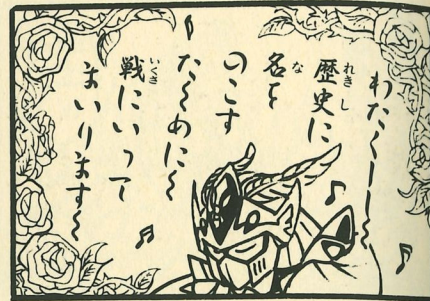 わたくし〜〜
歴史に
名を
のこす
ため〜に〜
戦にいって
まいります〜